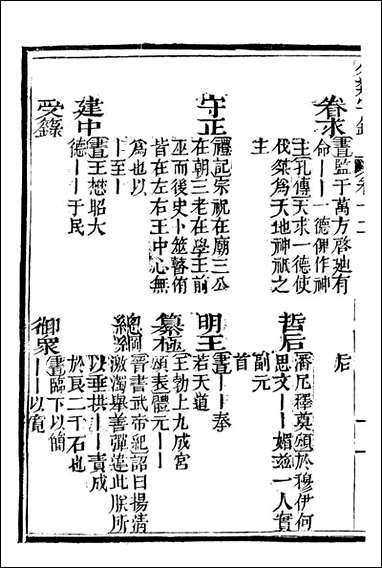 眷求
書監于萬方啓迪有
命——一德俾作神
主孔傳天求一德使
伐桀為天地神祇之
主
守正
禮記宗祝在廟三公
在朝三老在學王前
巫而後史卜筮瞽侑
皆在左右王中心無
為也以
—至—
建中
書王懋昭大
德——于民
受籙
后
哲后
潘尼釋奠頌於穆伊何
思文——媚茲一人實
副元
首
明王
書——奉
若天道
纂極
王勃上九成宮
頌表體元——
總綱
晉書武帝紀詔曰揚清
激濁舉善彈違此朕所
以垂拱——責成
於良二千石也
御衆
書臨下以簡
——以寬